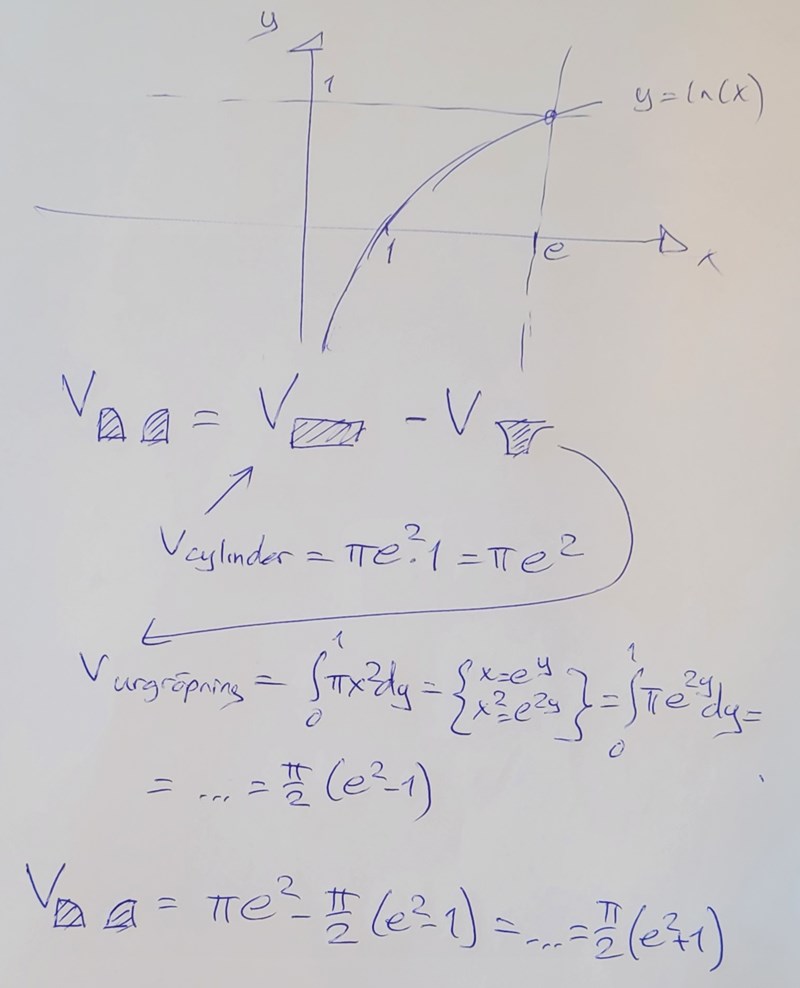 y
1
y=ln(x)
1
e
x
V = V - V
Vcylinder = πe²·1 = πe²
Vurgröpning = ∫₀¹ πx²dy = {x=e^y x²=e^2y} = ∫₀¹ πe^2y dy =
= ... = π/2 (e²-1)
V = πe² - π/2 (e²-1) = ... = π/2 (e²+1)